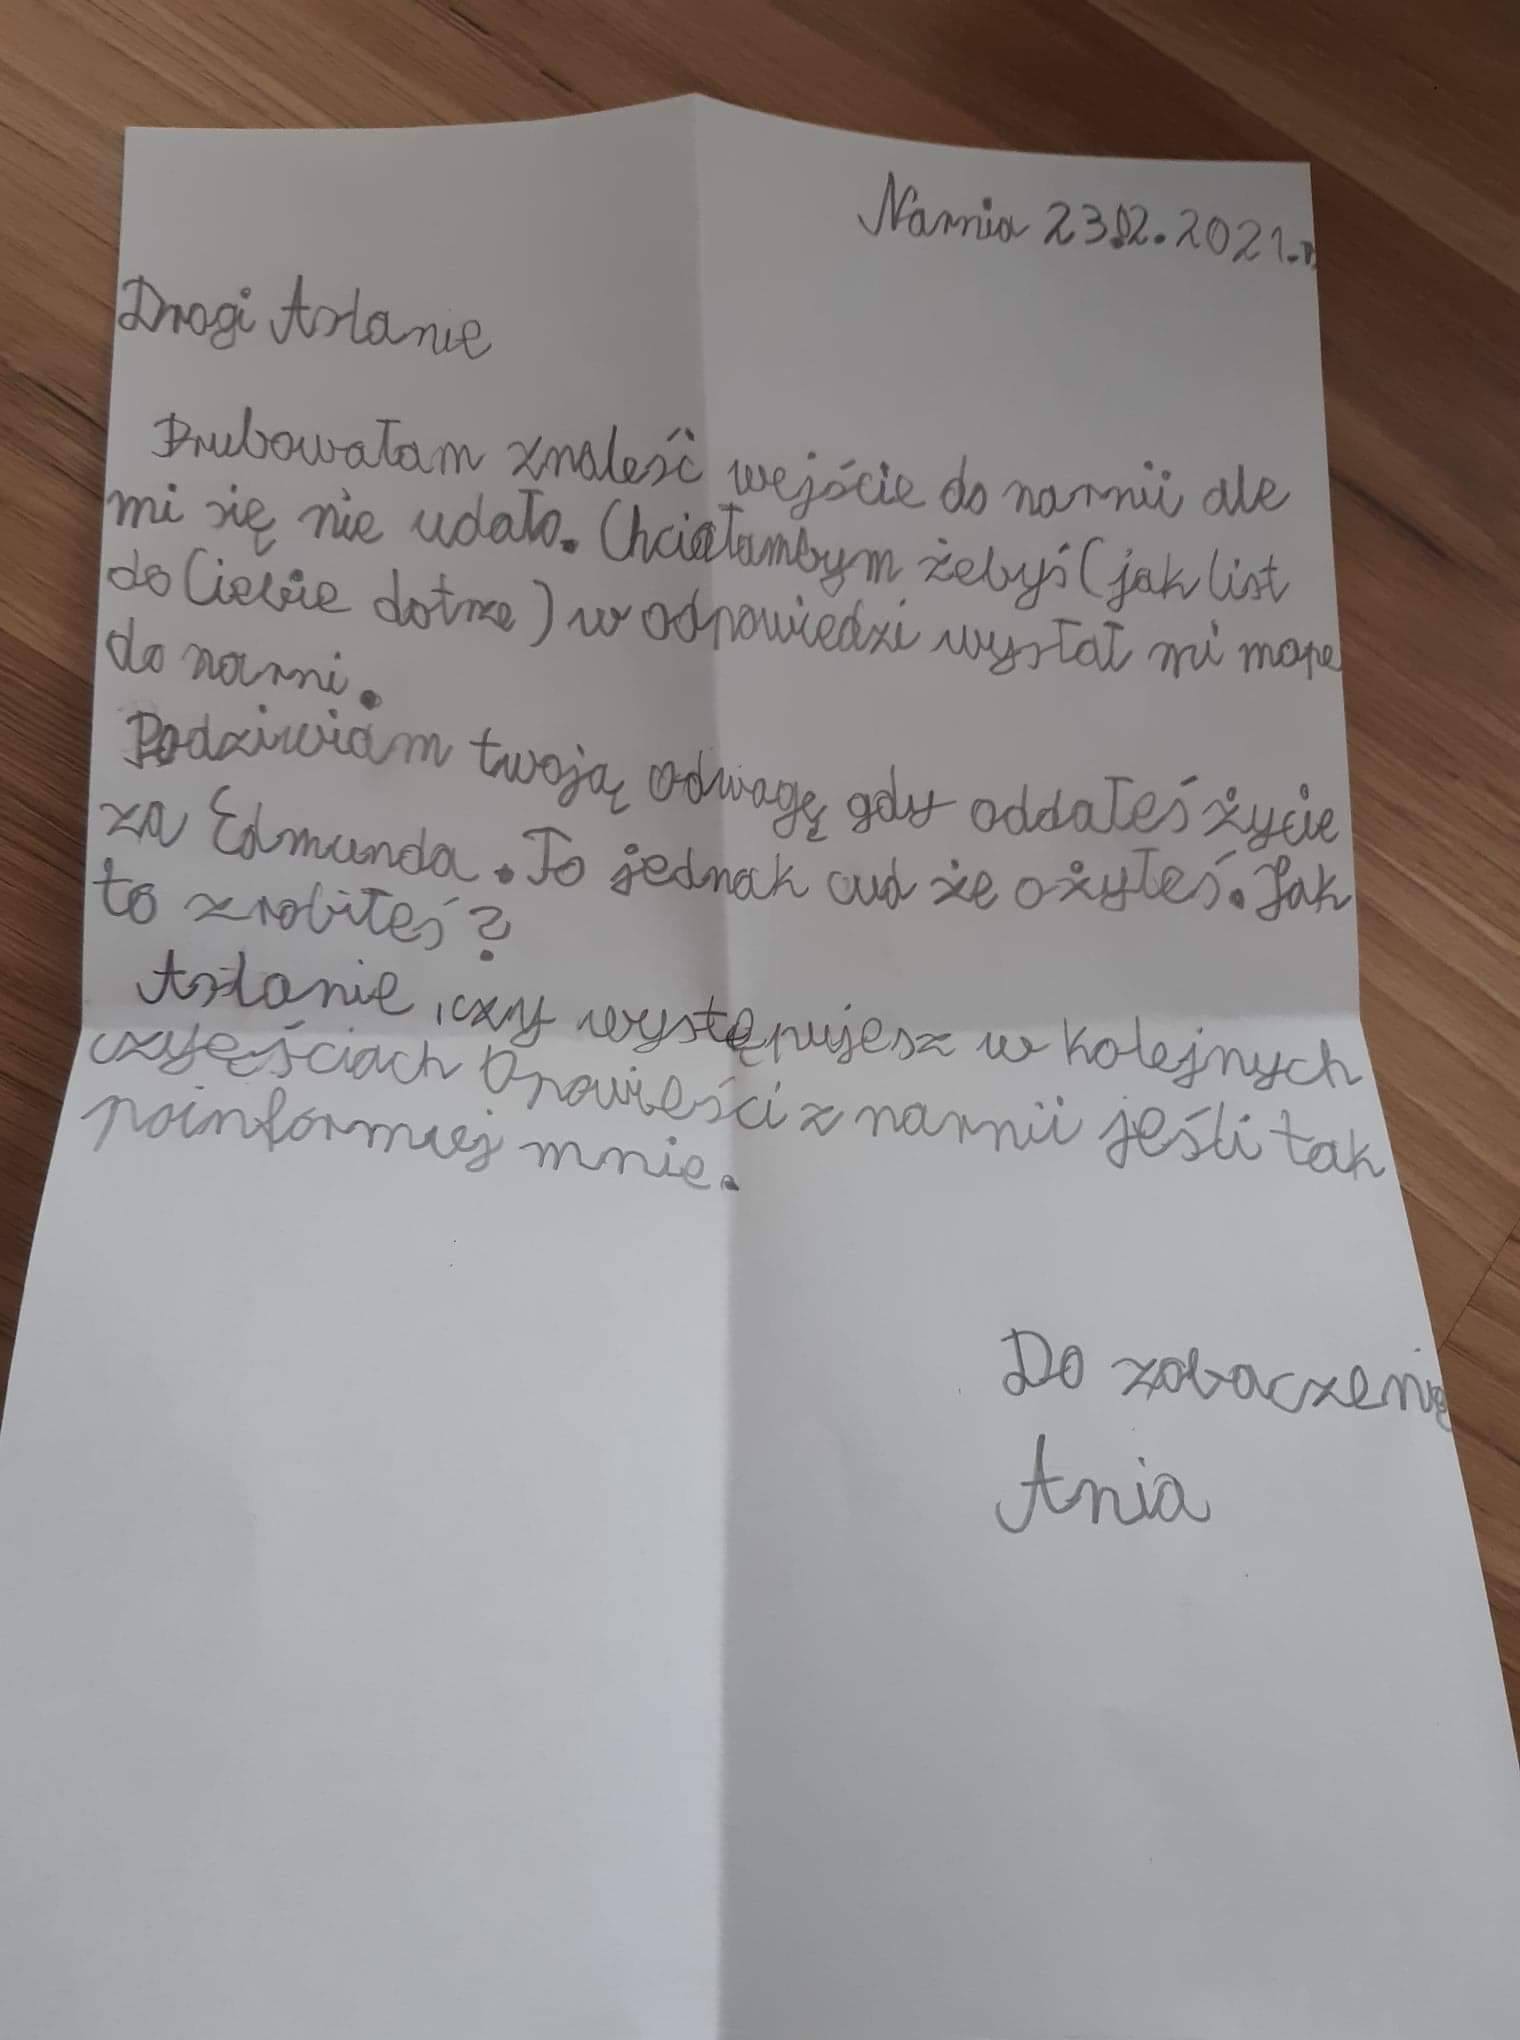 Narnia 23.02.2021.r
Drogi Asłanie
Prubowałam znaleść wejście do narnii ale
mi się nie udało. Chciałambym żebyś (jak list
do Ciebie dotrze) w odpowiedzi wysłał mi mape
do narni.
Podziwiam twoją odwagę gdy oddałeś życie
za Edmunda. To jednak cud że ożyłeś. Jak
to zrobiłeś?
Asłanie, czy występujesz w kolejnych
częściach Opowieści z narnii jeśli tak
poinformuj mnie.
Do zobaczenie
Ania